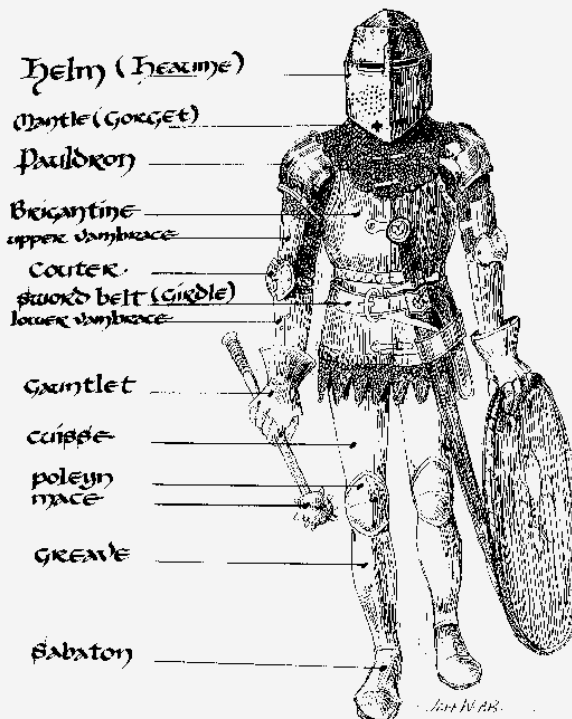 Helm (Heaume)
Mantle (Gorget)
Pauldron
Brigantine
upper vambrace
Couter.
sword belt (Girdle)
lower vambrace
Gauntlet
cuisse
poleyn
mace
Greave
Sabaton